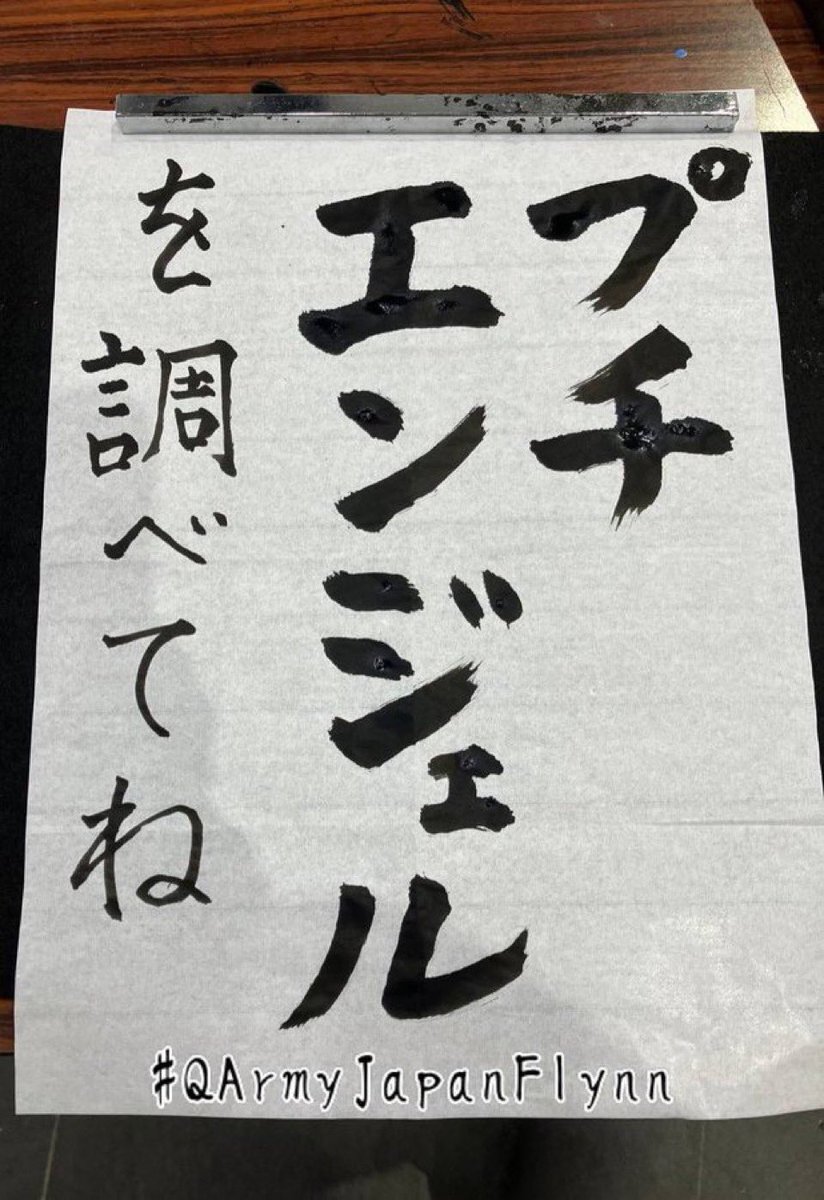 プチ
エンジェル
を調べてね
#QArmyJapanFlynn